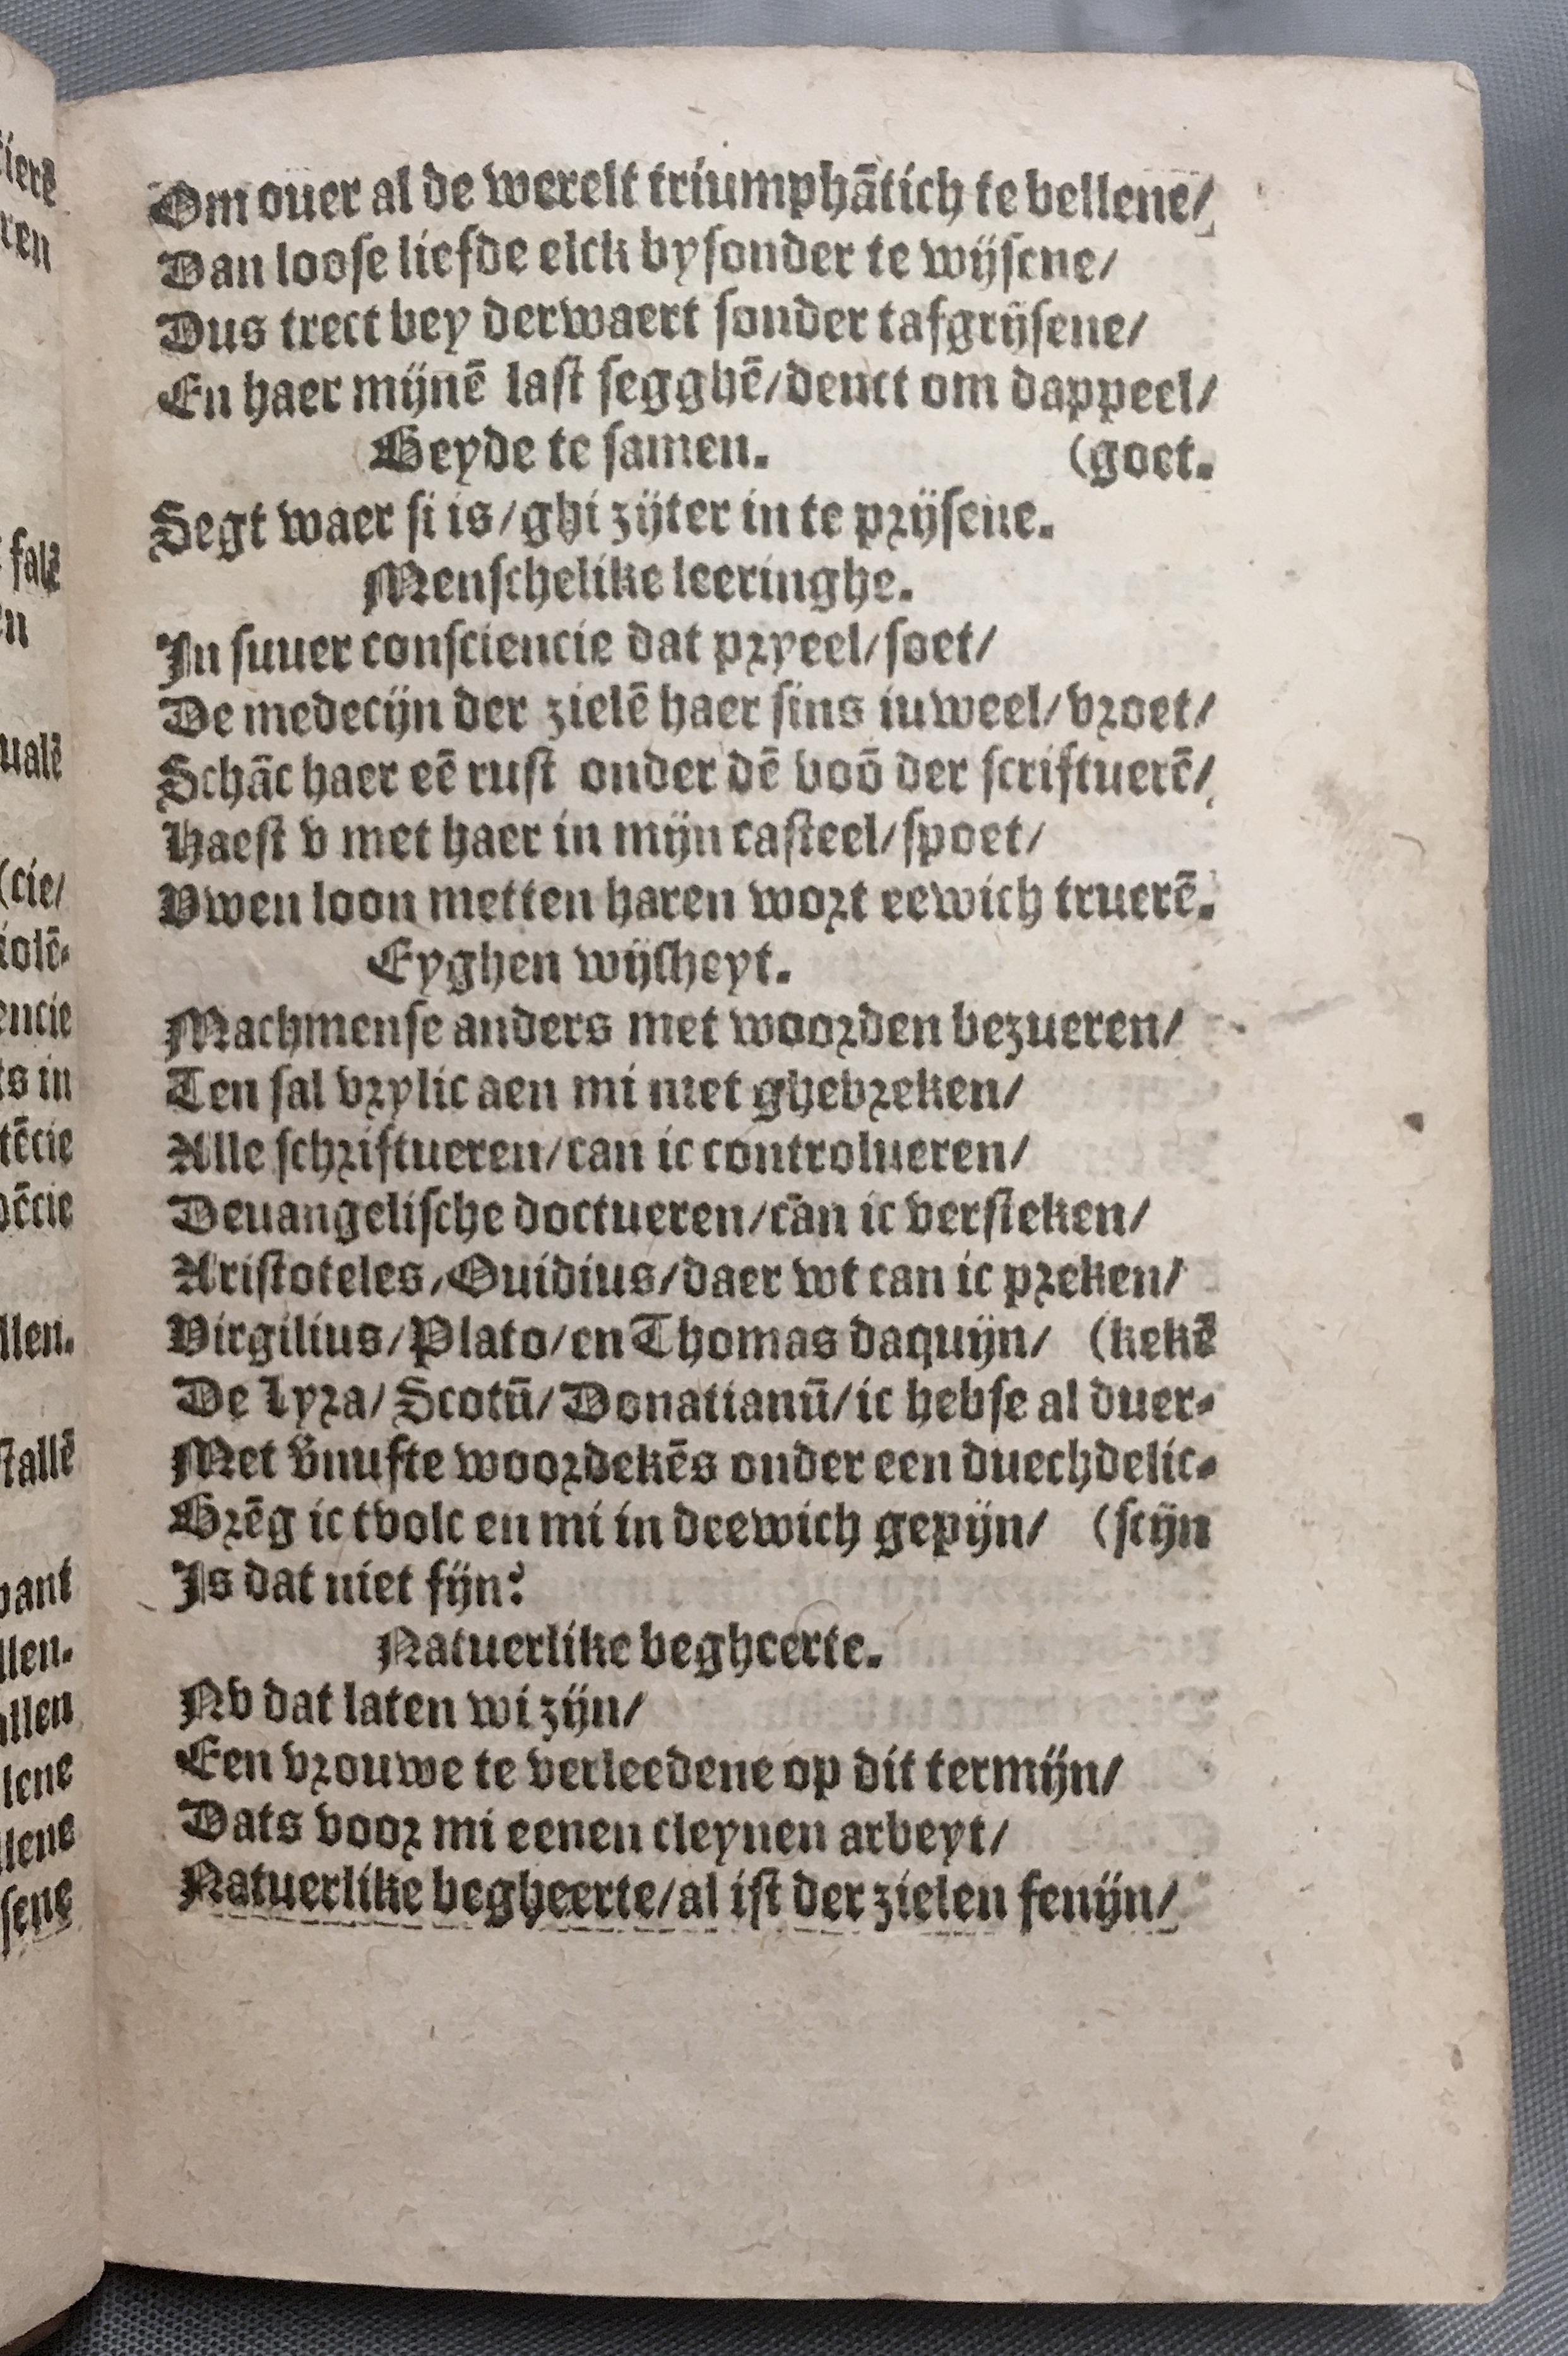 Om ouer al de werelt triumphātich te bellene/
Dan loose liefde elck bysonder te wijsene/
Dus trect bey derwaert sonder tafgrijsene/
En haer mijnē last segghē/denct om dappeel/
Beyde te samen. (goet.
Segt waer si is/ghi zijter in te prijsene.
Menschelike leeringhe.
In suuer consciencie dat pryeel/soet/
De medecijn der zielē haer sins iuweel/vroet/
Schāc haer eē rust onder dē boō der scriftuerē/
Haest v met haer in mijn casteel/spoet/
Vwen loon metten haren wort eewich truerē.
Eyghen wijsheyt.
Machmense anders met woorden bezueren/
Ten sal vrylic aen mi niet ghebreken/
Alle schriftueren/can ic controlueren/
Deuangelische doctueren/can ic versteken/
Aristoteles/Ouidius/daer wt can ic preken/
Virgilius/Plato/en Thomas daquijn/ (kekē
De Lyra/Scotū/Donatianū/ic hebse al duer-
Met v̄nufte woordekēs onder een duechdelic-
Brēg ic tvolc en mi in deewich gepijn/ (scijn
Is dat niet fijn?
Natuerlike begheerte.
Nv dat laten wi zijn/
Een vrouwe te verleedene op dit termijn/
Dats voor mi eenen cleynen arbeyt/
Natuerlike begheerte/al ist der zielen fenijn/